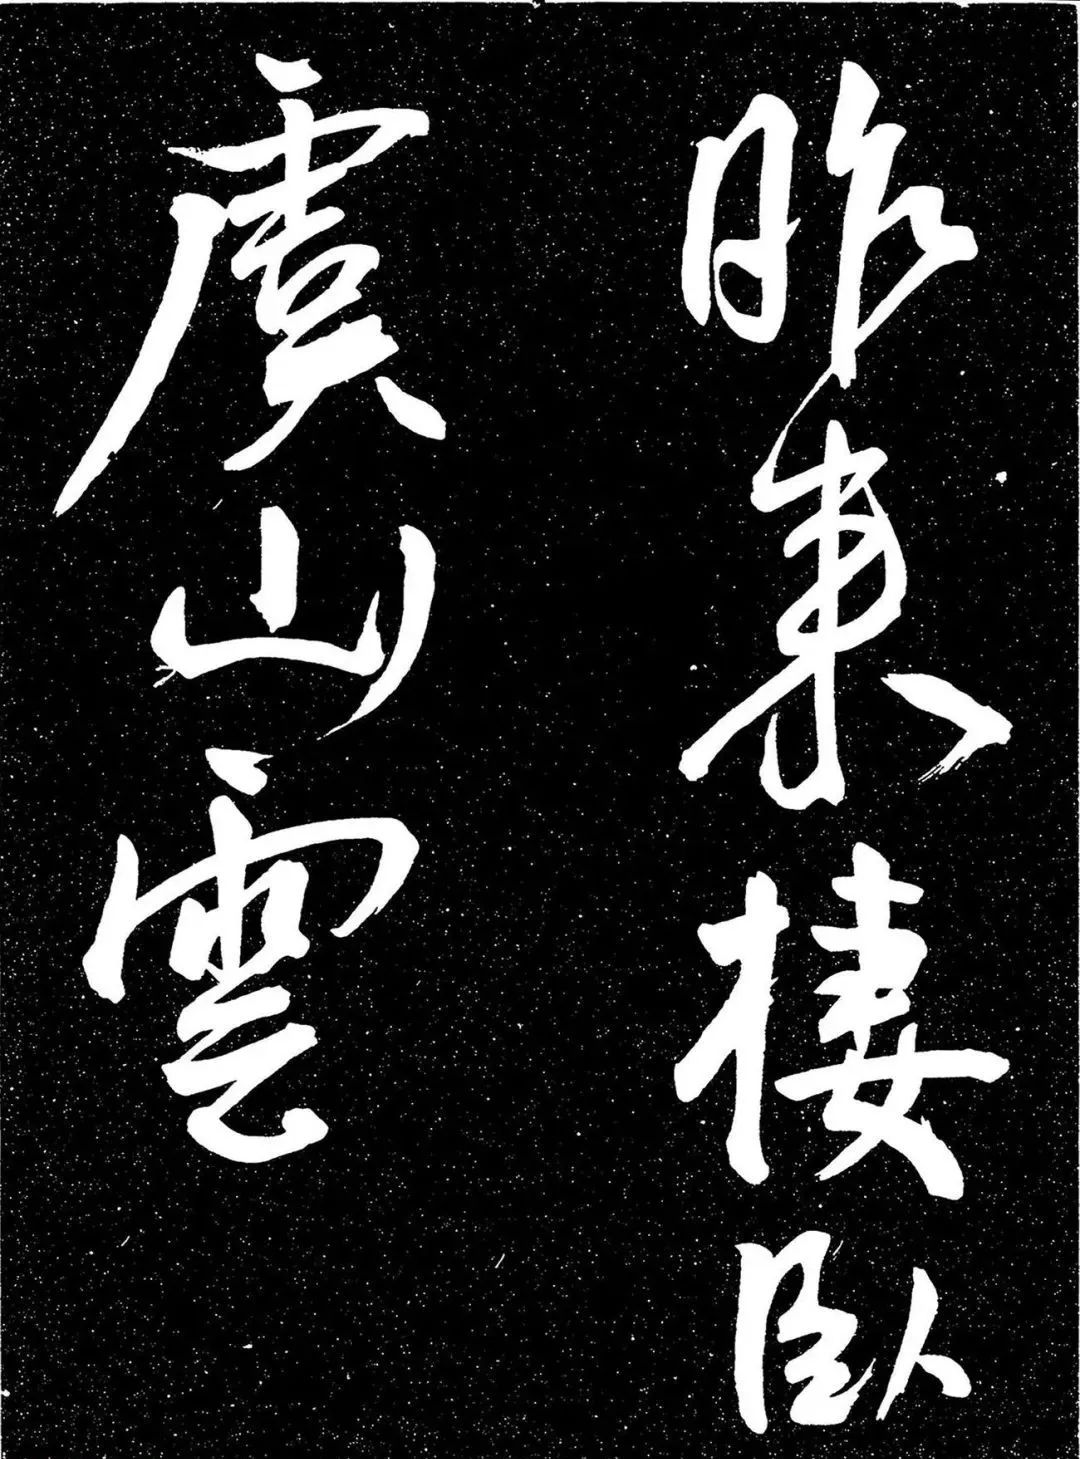 昨來棲臥
虞山雲